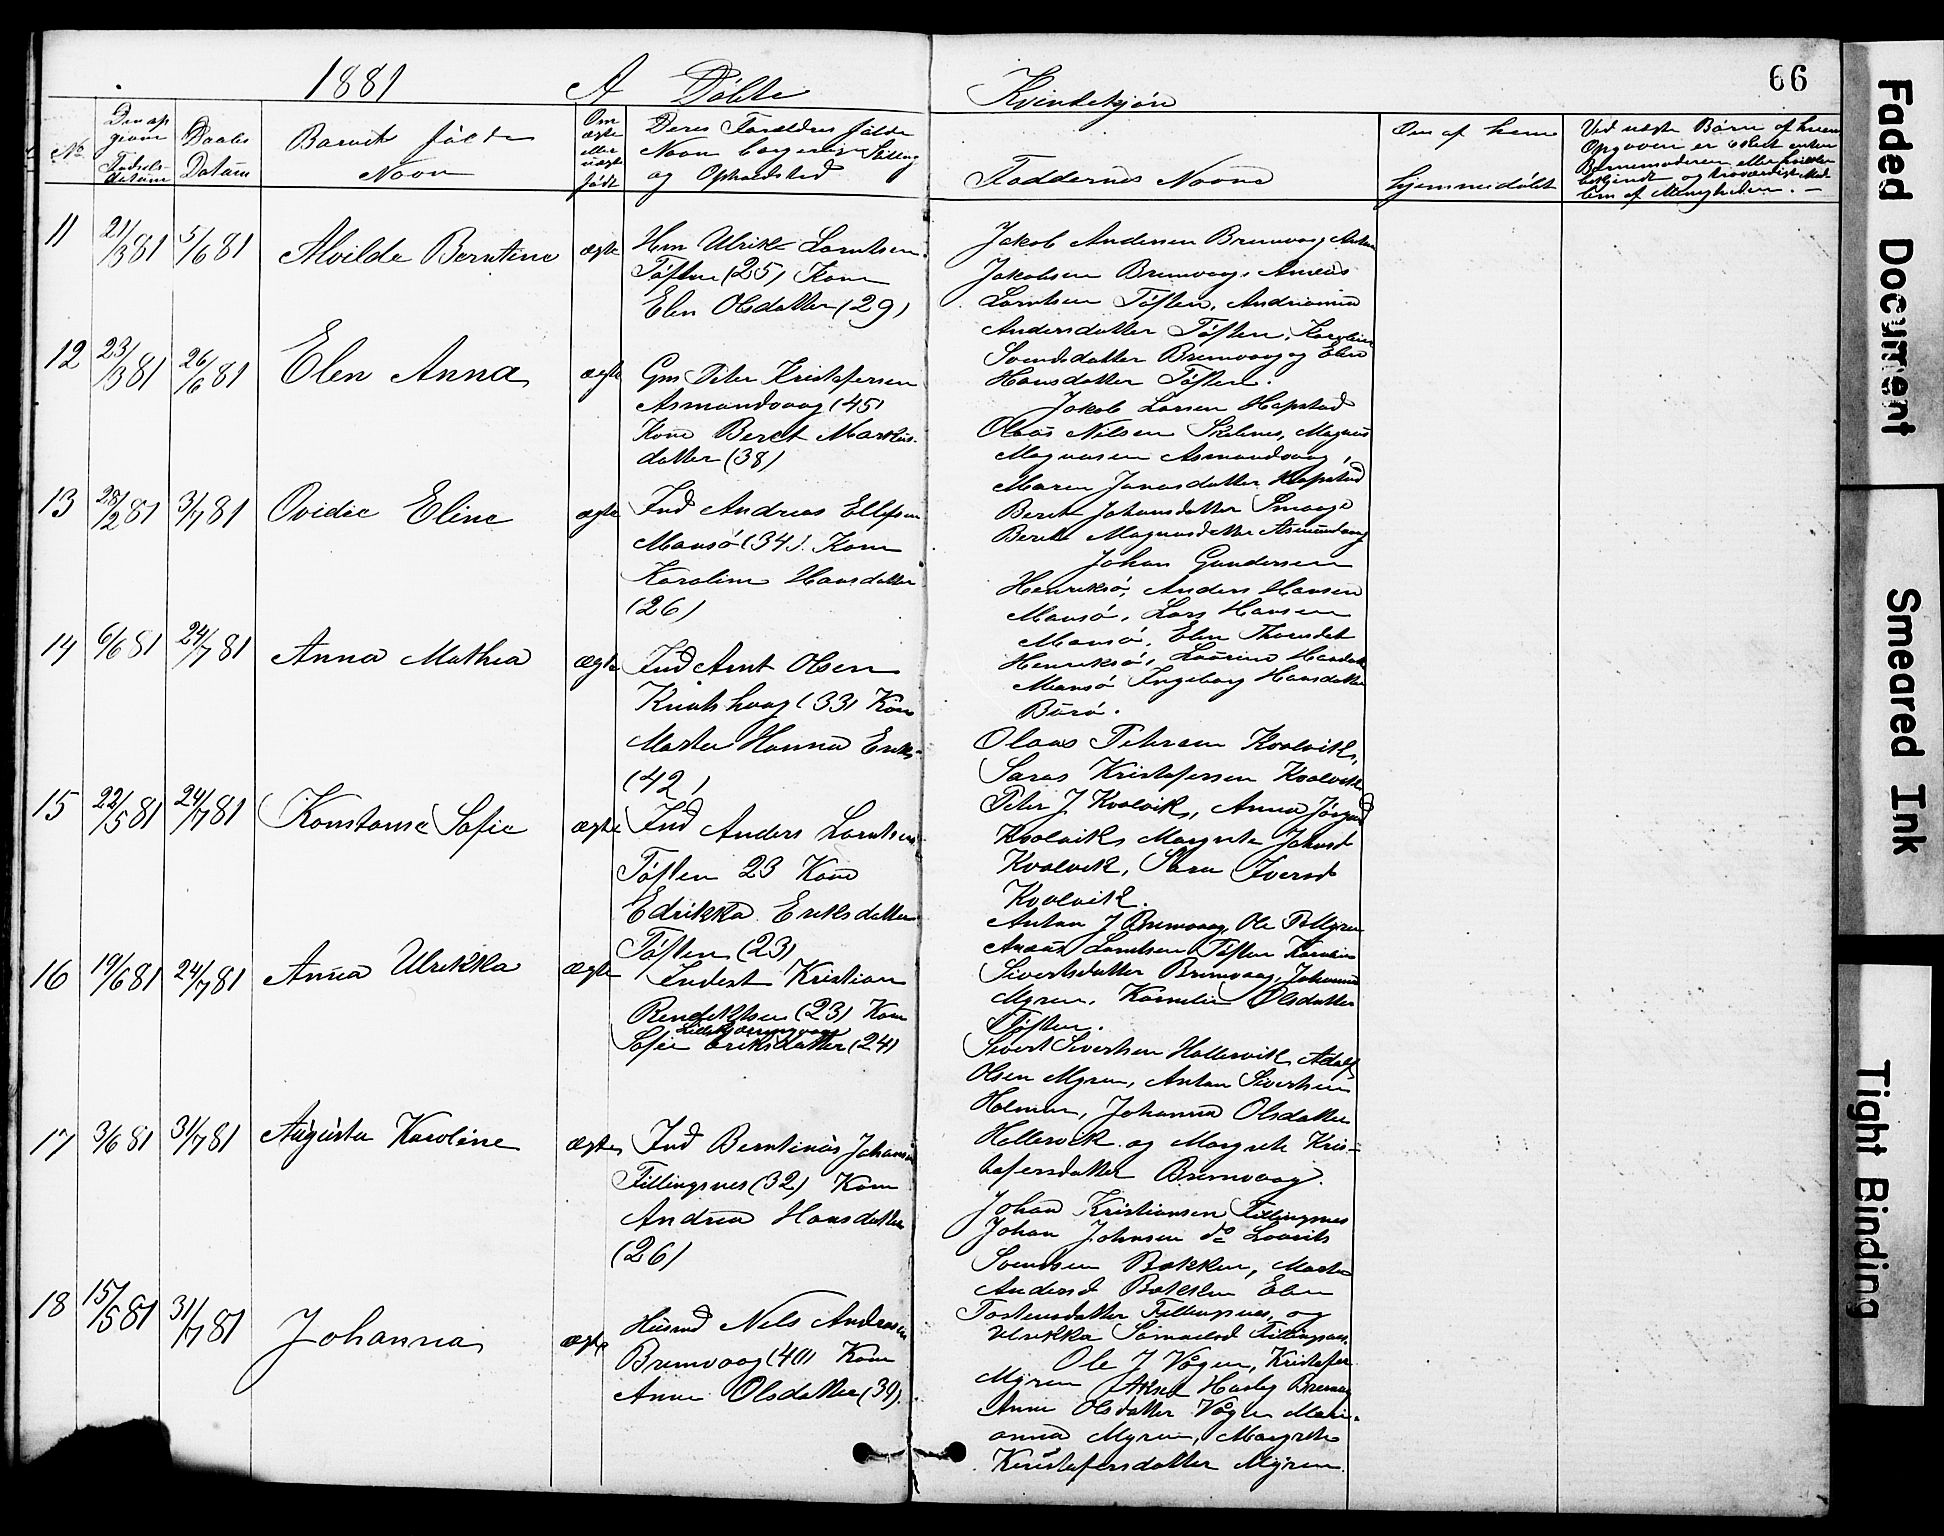 1881 A Døbte
Kvindekjøn
66
No
Den opgivne Fødselsdatum
Daabs Datum
Barnets fulde Navn
Om ægte eller uægte født
Deres Forældres fulde Navn borgerlige Stilling og Opholdsted
Faddernes Navne
Om af hvem hjemmedøbt
Ved uægte Børn af hvem Opgaven er
11 21/3 81 5/6 81 Alvilde Berntine ægte
Ulrik Lorntsen
Tøften (25) Kone
Elen Olsdatter (29)
Jakob Andersen Bremvaag, Anton
Jakobsen Bremvaag,
Lorntsen Tøften,
Andersdatter Tøften, Karoline
Svendsdatter Bremvaag og Elen
Hansdatter Tøften.
12 23/3 81 26/6 81 Elen Anna ægte
Gm Peter Kristofersen
Asmundvaag (45)
Kone Beret Markus-
datter (38)
Jakob Larsen Hopstad
Olaus Nilsen Skibnes, Magnus
Magnusen Asmundvaag,
Maren Jonasdatter Hopstad
Beret Johansdatter Smaage
Berit Magnusdatter Asmundvaag
13 28/2 81 3/7 81 Ovidie Eline ægte
Ind Andreas Ellefsen
Mausø (34). Kone
Karoline Hansdatter
(26)
Johan Gundersen
Henriksø, Anders Hansen
Mausø, Lars Hansen
Mausø. Elen
Henriksø,
Mausø Ingeborg Hansdatter
Burø.
14 6/6 81 24/7 81 Anna Mathea ægte
Ind Arnt Olsen
(33) Kone
Marta Hanna Eriks-
(42)
Olaus Petersen Kvalvik,
Kristofersen Kvalvik
Peter J Kvalvik, Anna
Kvalvik, Margrete
Kvalvik, Iversd
Kvalvik.
15 22/5 81 24/7 81 Konstanse Sofie ægte
Ind Anders Lorntsen
Tøften 23 Kone
Edrikka Eriksdatter
Tøften (23)
Anton J Bremvaag, Ole P Myren
Lorntsen Tøften
Sivertsdatter Bremvaag, Johanna
Myren, Kornelia Olsdatter
Tøften.
16 19/6 81 24/7 81 Anna Ulrikka ægte
Inderst Kristian
(23) Kone
Sofie Eriksdatter (24)
Sivert Sivertsen Hallervik, Adolf
Olsen Myren, Anton Sivertsen
Holmen, Johanna Olsdatter
Hellervik og Margrete Kris-
tofersdatter Bremvaag.
17 3/6 81 31/7 81 Augusta Karoline ægte
Ind Berntinus Johansen
Fillingsnes (32) Kone
Andrea Hansdatter
(26)
Johan Kristiansen Fillingsnes
Johan Johnsen do Laurits
Svendsen Bakken, Marta
Andersd Bakken Elen
Tostensdatter Fillingsnes, og
Ulrikka Samuelsd Fillingsnes.
18 15/5 81 31/7 81 Johanna ægte
Husmd Nels Andersen
Bremvaag (40) Kone
Anne Olsdatter (39).
Ole J Vågen, Kristofer
Myren Bremvaag
Anne Olsdatter Vågen Mari-
anna Myren, Margrete
Kristofersdatter Myren.
Faded Document
Smeared Ink
Tight Binding